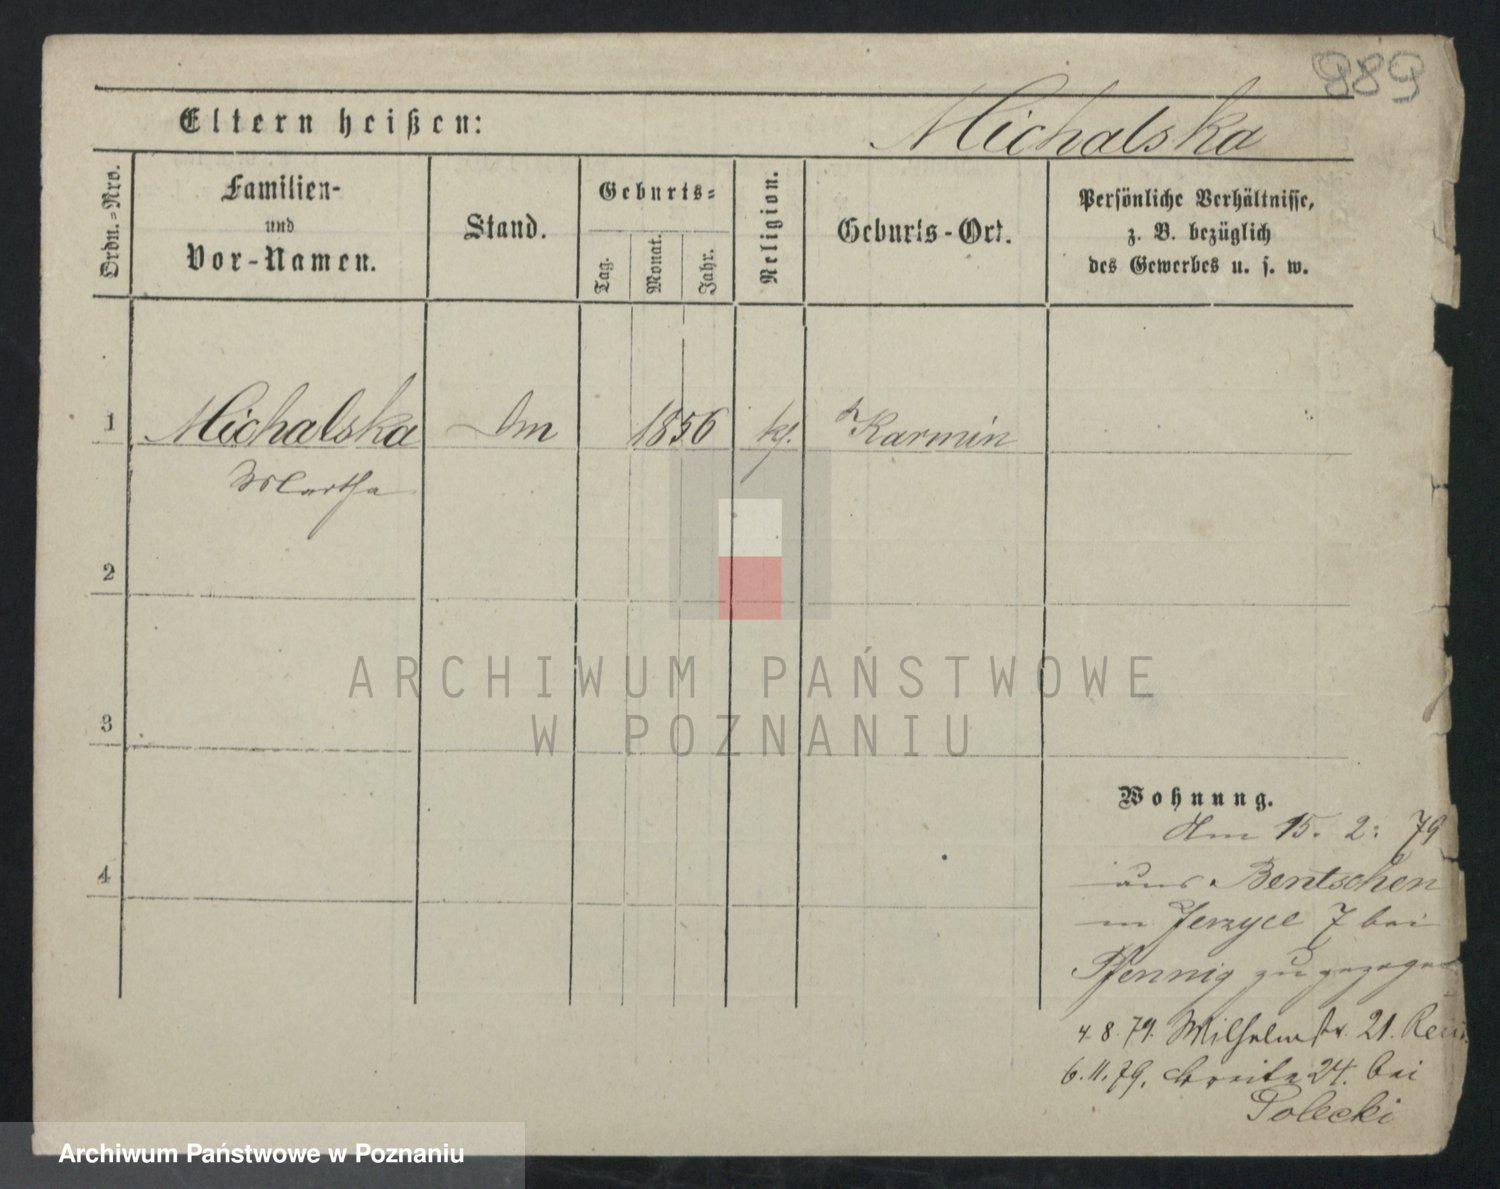 989
Eltern heißen:
Michalska
Ordn.=Nro.
Familien-
und
Vor-Namen.
Stand.
Geburts=
Tag.
Monat.
Jahr.
Religion.
Geburts-Ort.
Persönliche Verhältnisse,
z. B. bezüglich
des Gewerbes u. s. w.
1
Michalska
Martha
1856
Karmin
2
3
4
ARCHIWUM PAŃSTWOWE
W POZNANIU
Wohnung.
Am 15. 2. 79
aus Bentschen
in Jerzyce 7 bei
Pfennig zugezogen
4. 8. 79. Wilhelmstr. 21.
6. 11. 79. Breite 24. bei
Polecki
Archiwum Państwowe w Poznaniu